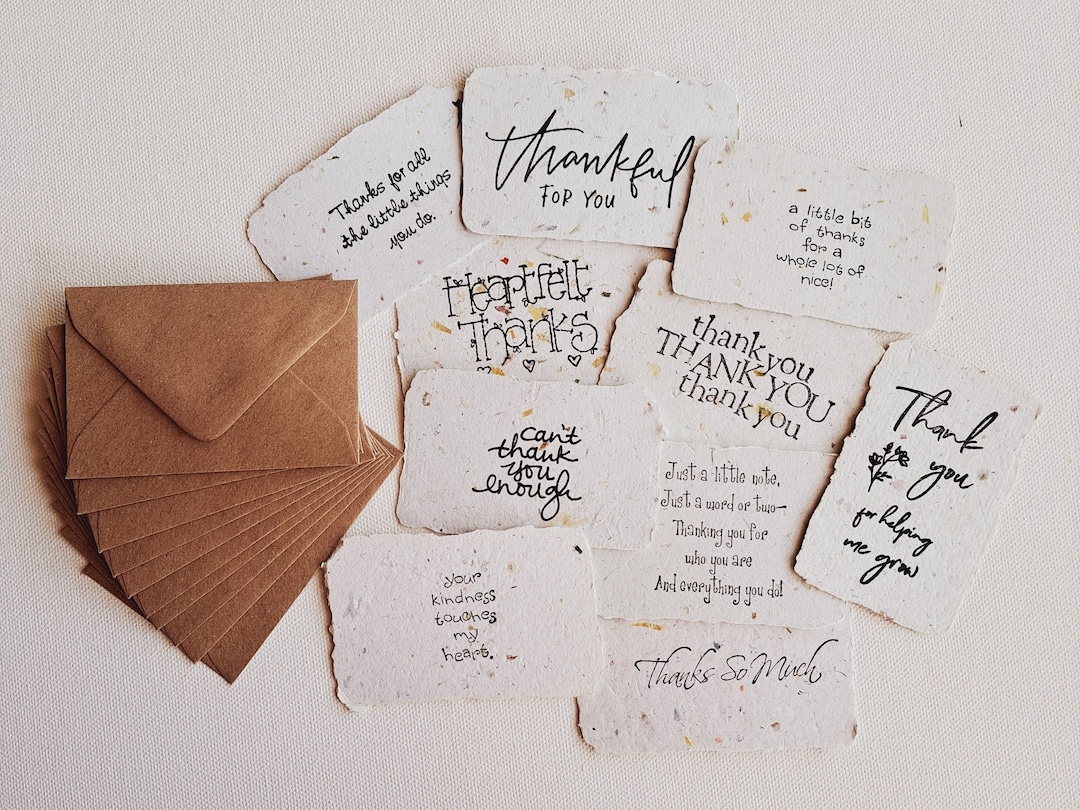 Thanks for all
the little things
you do.
thankful
FOR YOU
a little bit
of thanks
for a
whole lot of
nice!
Heartfelt
Thanks
thank you
THANK YOU
thank you
Thank
you
for helping
me grow
can't
thank
you
enough
Just a little note,
Just a word or two—
Thanking you for
who you are
And everything you do!
your
kindness
touches
my
heart.
Thanks So Much